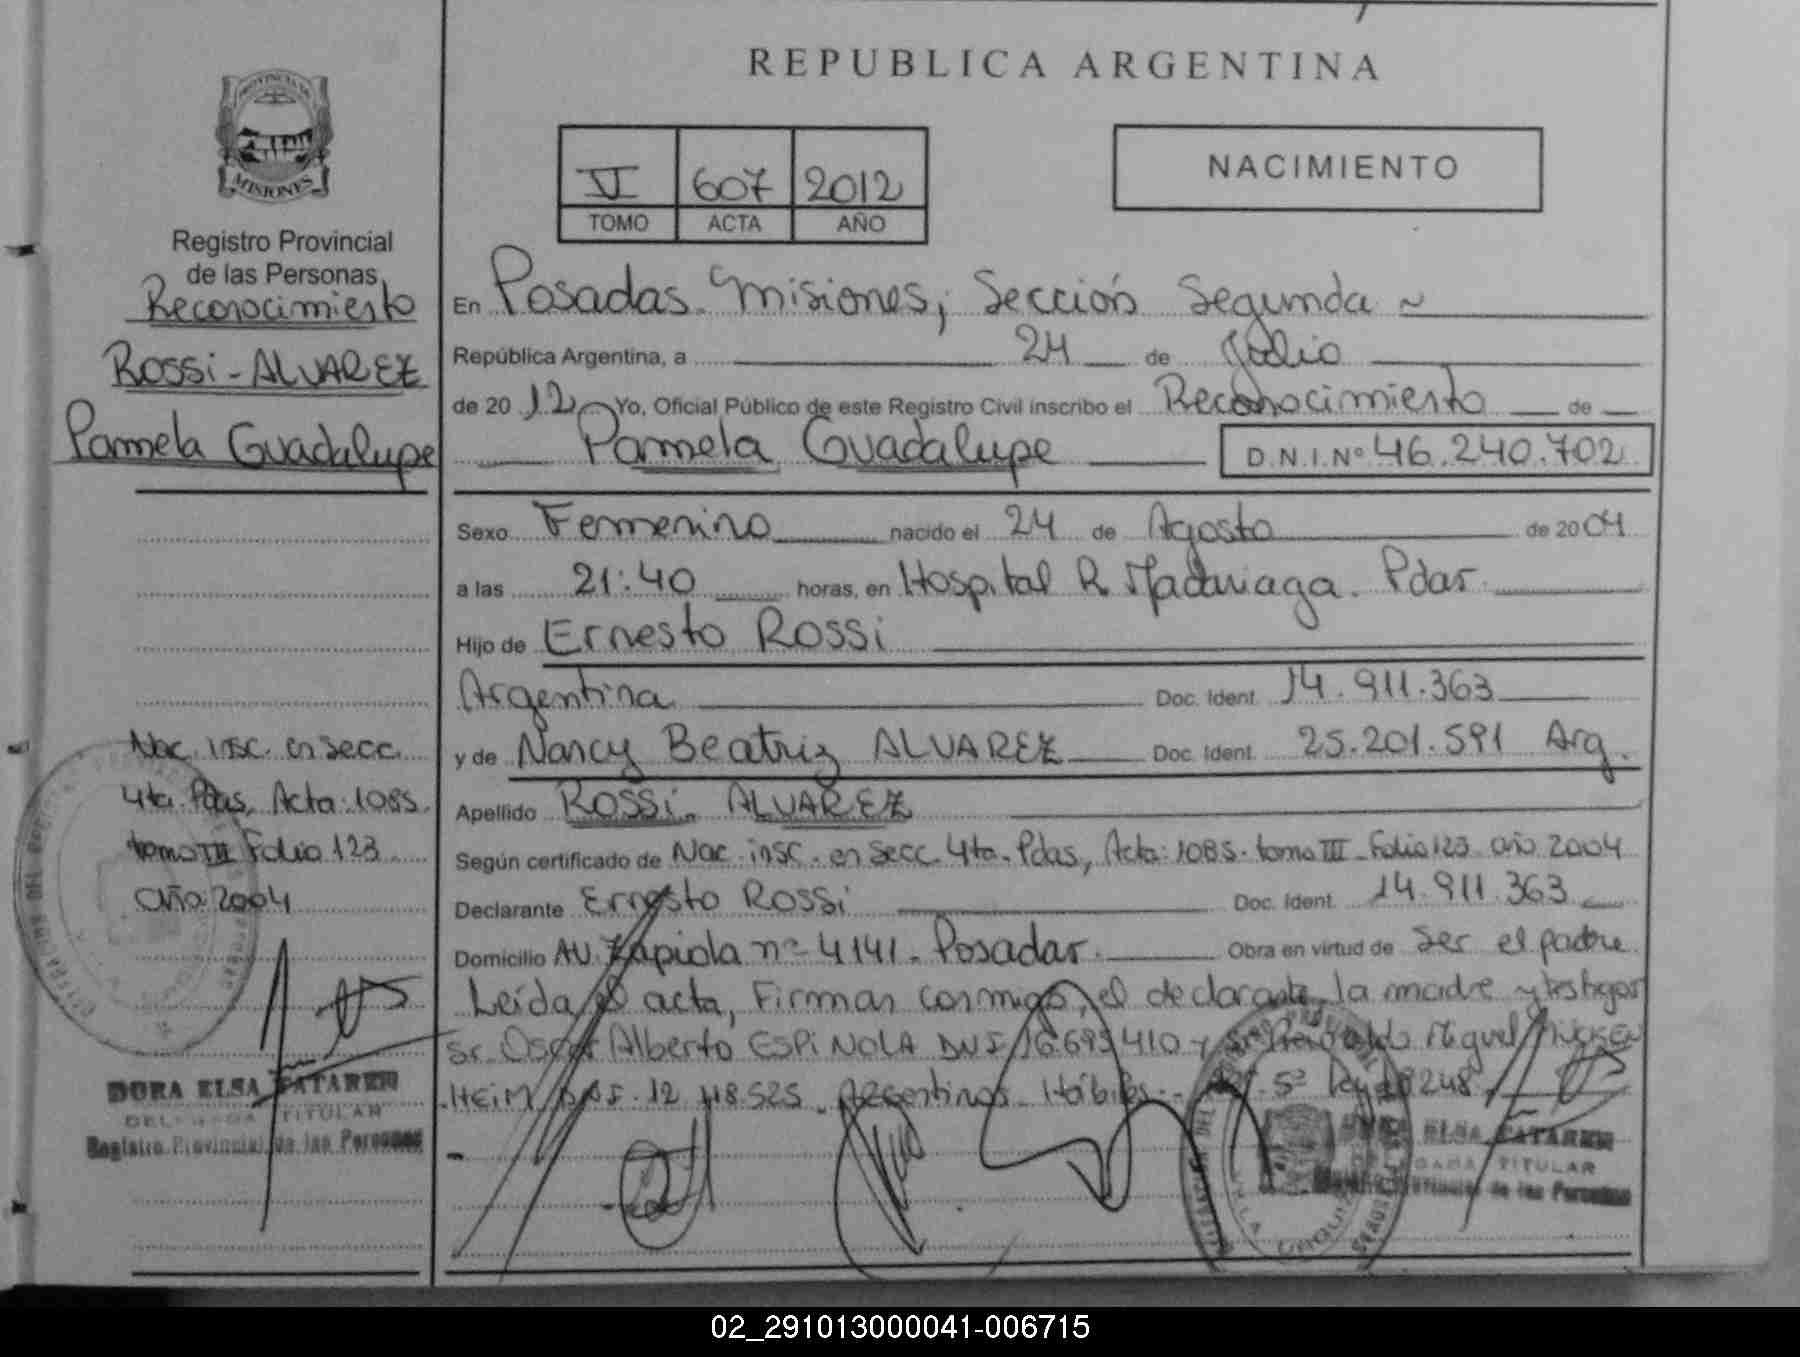 REPUBLICA ARGENTINA
PROVINCIA DE
MISIONES
Registro Provincial
de las Personas
Reconocimiento
ROSSi - ALVAREZ
Pamela Guadalupe
Nac. insc. en secc.
4ta. Pdas, Acta: 1085.
tomo III Folio 123
año: 2004
DORA ELSA
DELEGADA TITULAR
Registro Provincial de las Personas
VI 607 2012
TOMO ACTA AÑO
NACIMIENTO
En Posadas. Misiones, Sección Segunda
República Argentina, a 24 de Julio
de 2012 Yo, Oficial Público de este Registro Civil inscribo el Reconocimiento de
Pamela Guadalupe D.N.I.Nº 46.240.702
Sexo Femenino nacido el 24 de Agosto de 2004
a las 21:40 horas, en Hospital R. Madariaga. Pdas.
Hijo de Ernesto ROSSi
Argentina Doc. Ident. 14.911.363
y de Nancy Beatriz ALVAREZ Doc. Ident. 25.201.591 Arg.
Apellido ROSSi - ALVAREZ
Según certificado de Nac. insc. en secc. 4ta. Pdas, Acta: 1085. tomo III - Folio 123 año 2004
Declarante Ernesto ROSSi Doc. Ident. 14.911.363
Domicilio AV. Zapiola nº 4141. Posadas. Obra en virtud de Ser el padre
Leída el acta, Firman conmigo, el declarante, la madre y testigos
Sr. Oscar Alberto ESPiNOLA DNI 16.695.410 y Sr. Miguel
HEiM DNI. 12.118.525. Argentinos. Hábiles.
DORA ELSA
DELEGADA TITULAR
Registro Provincial de las Personas
02_291013000041-006715